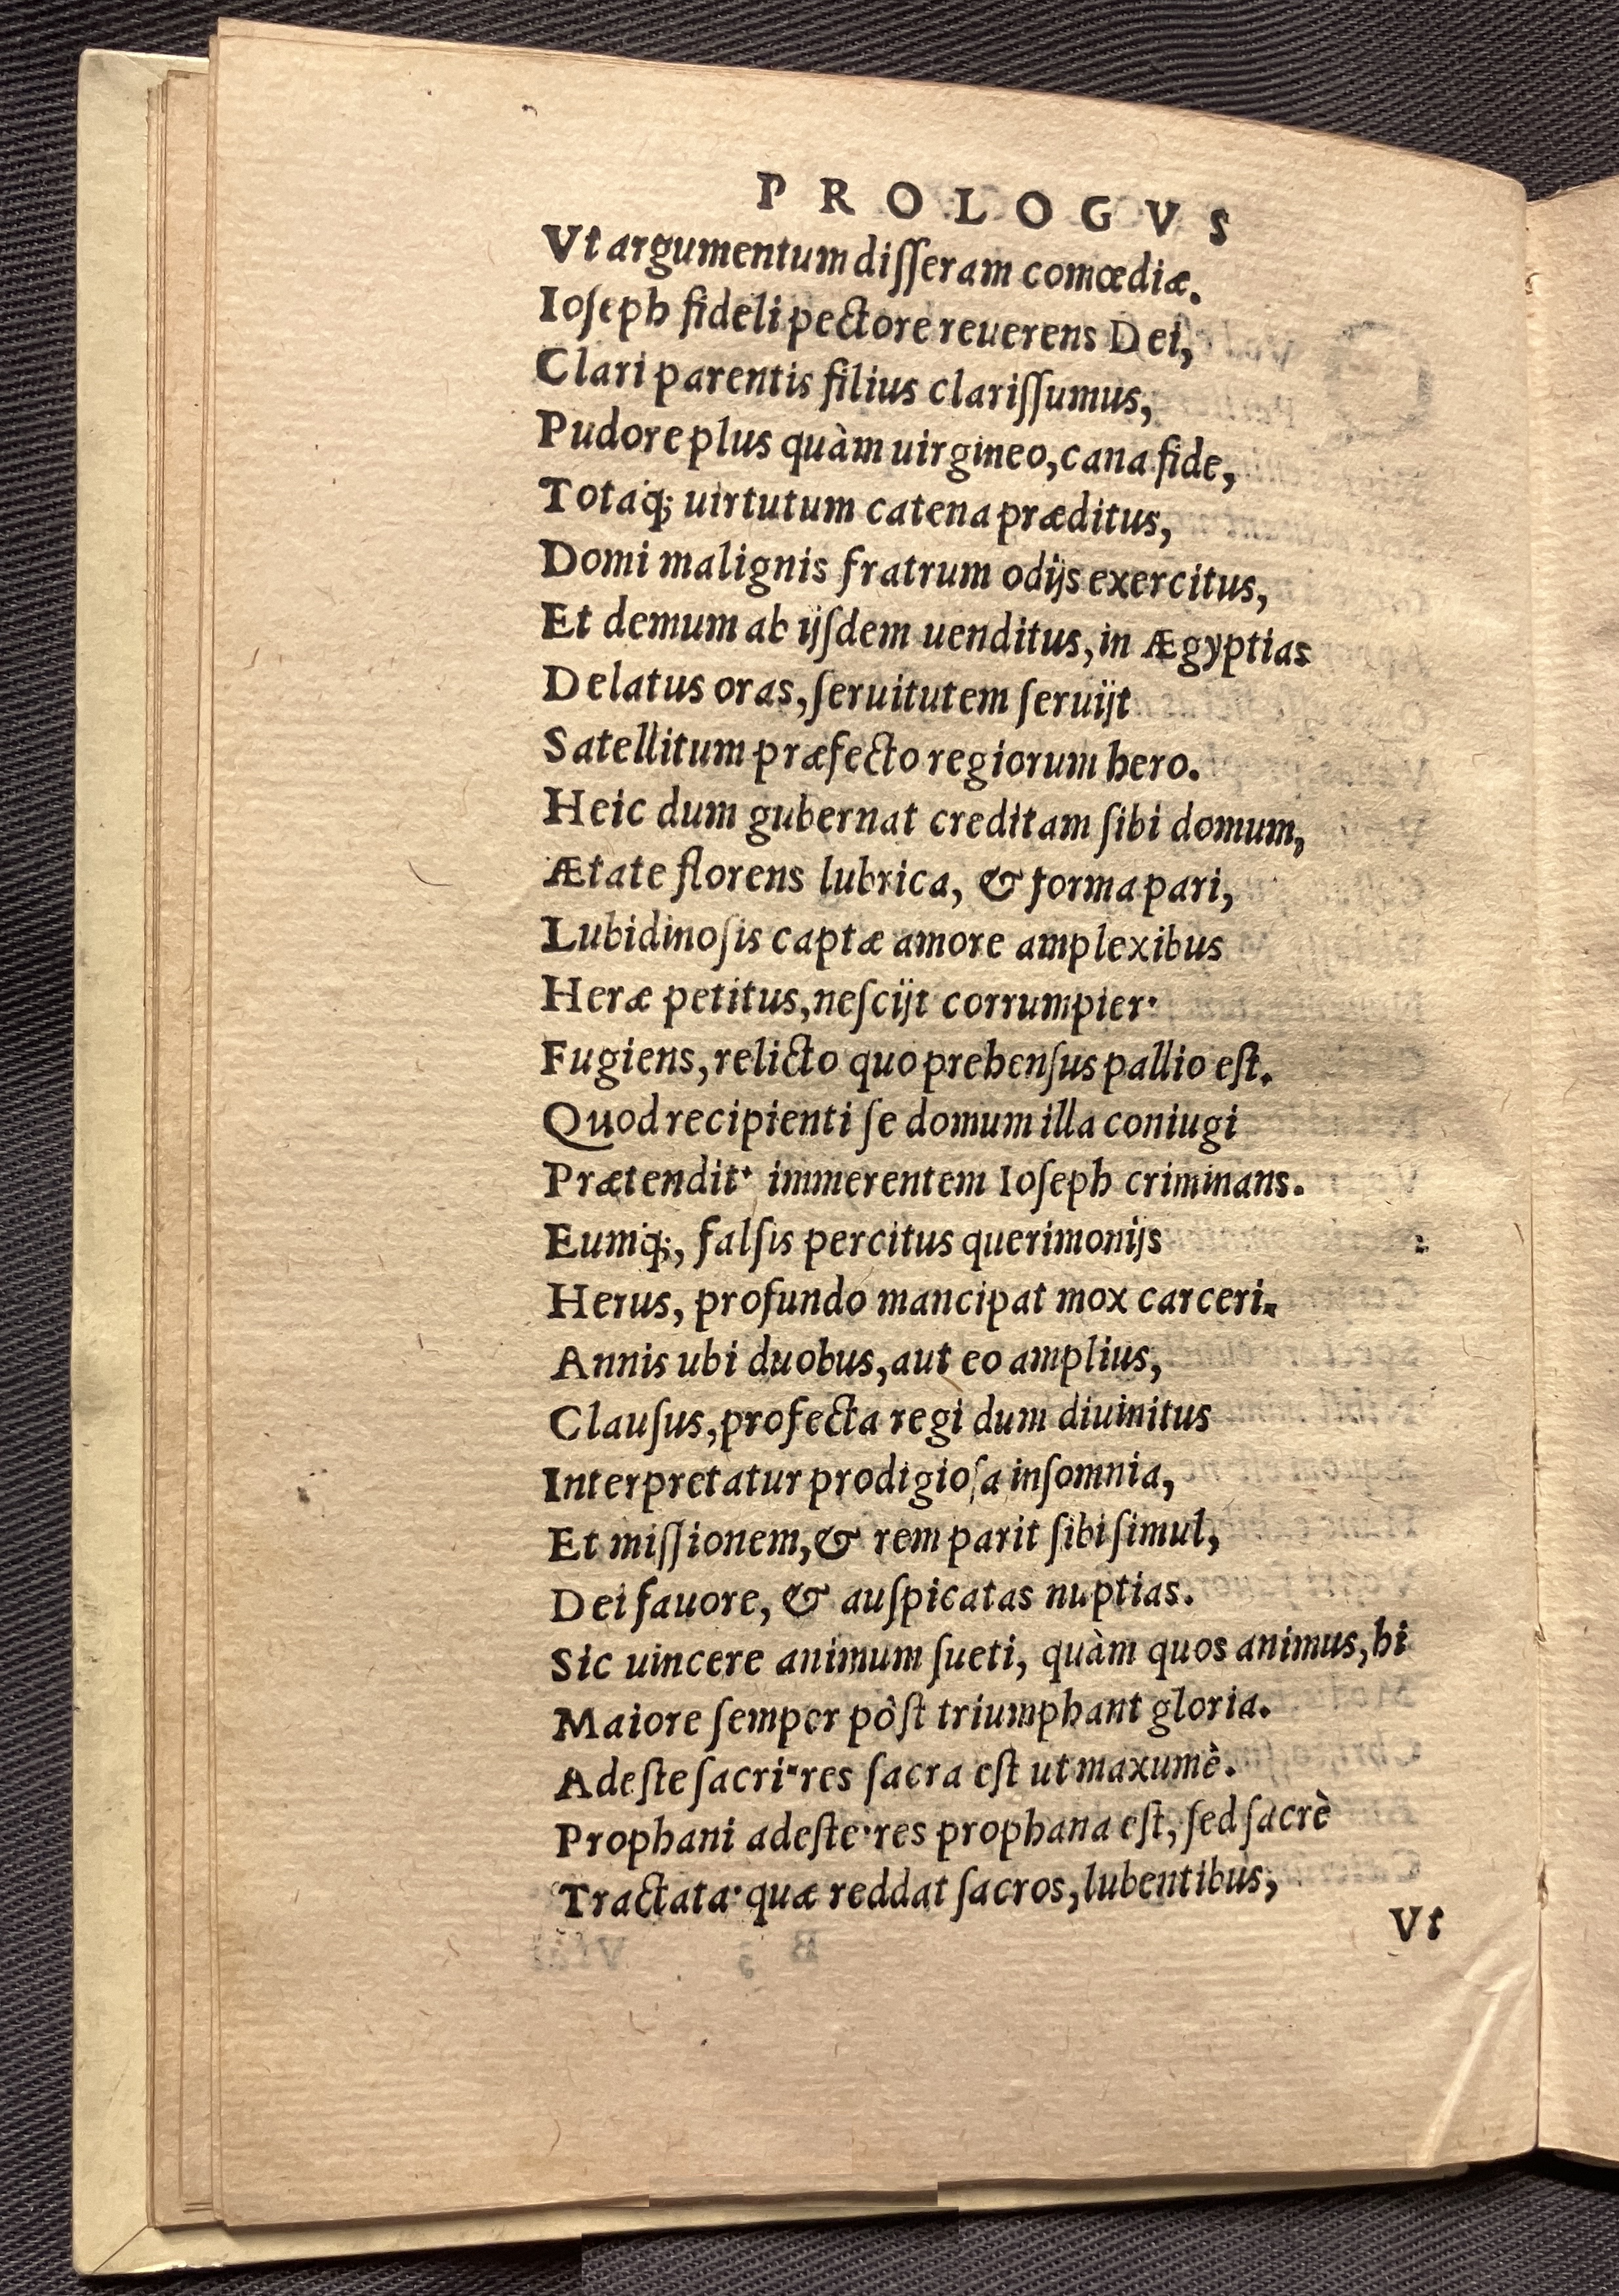 PROLOGVS
Vt argumentum disſeram comœdiæ.
Ioſeph fideli pectore reuerens Dei,
Clari parentis filius clariſſumus,
Pudore plus quàm uirgineo, cana fide,
Totaq́; uirtutum catena præditus,
Domi malignis fratrum odijs exercitus,
Et demum ab ijſdem uenditus, in Ægyptias
Delatus oras, ſeruitutem ſeruijt
Satellitum præfecto regiorum hero.
Heic dum gubernat creditam ſibi domum,
Ætate florens lubrica, & forma pari,
Lubidinoſis captæ amore amplexibus
Heræ petitus, neſcijt corrumpier·
Fugiens, relicto quo prehenſus pallio eſt.
Quod recipienti ſe domum illa coniugi
Prætendit· immerentem Ioſeph criminans.
Eumq́;, falſis percitus querimonijs
Herus, profundo mancipat mox carceri.
Annis ubi duobus, aut eo amplius,
Clauſus, profecta regi dum diuinitus
Interpretatur prodigioſa inſomnia,
Et miſſionem, & rem parit ſibi ſimul,
Dei fauore, & auſpicatas nuptias.
Sic uincere animum ſueti, quàm quos animus, hi
Maiore ſemper pòſt triumphant gloria.
Adeſte ſacri· res ſacra eſt ut maxumè.
Prophani adeſte· res prophana eſt, ſed ſacrè
Tractata· quæ reddat ſacros, lubentibus,
Vt